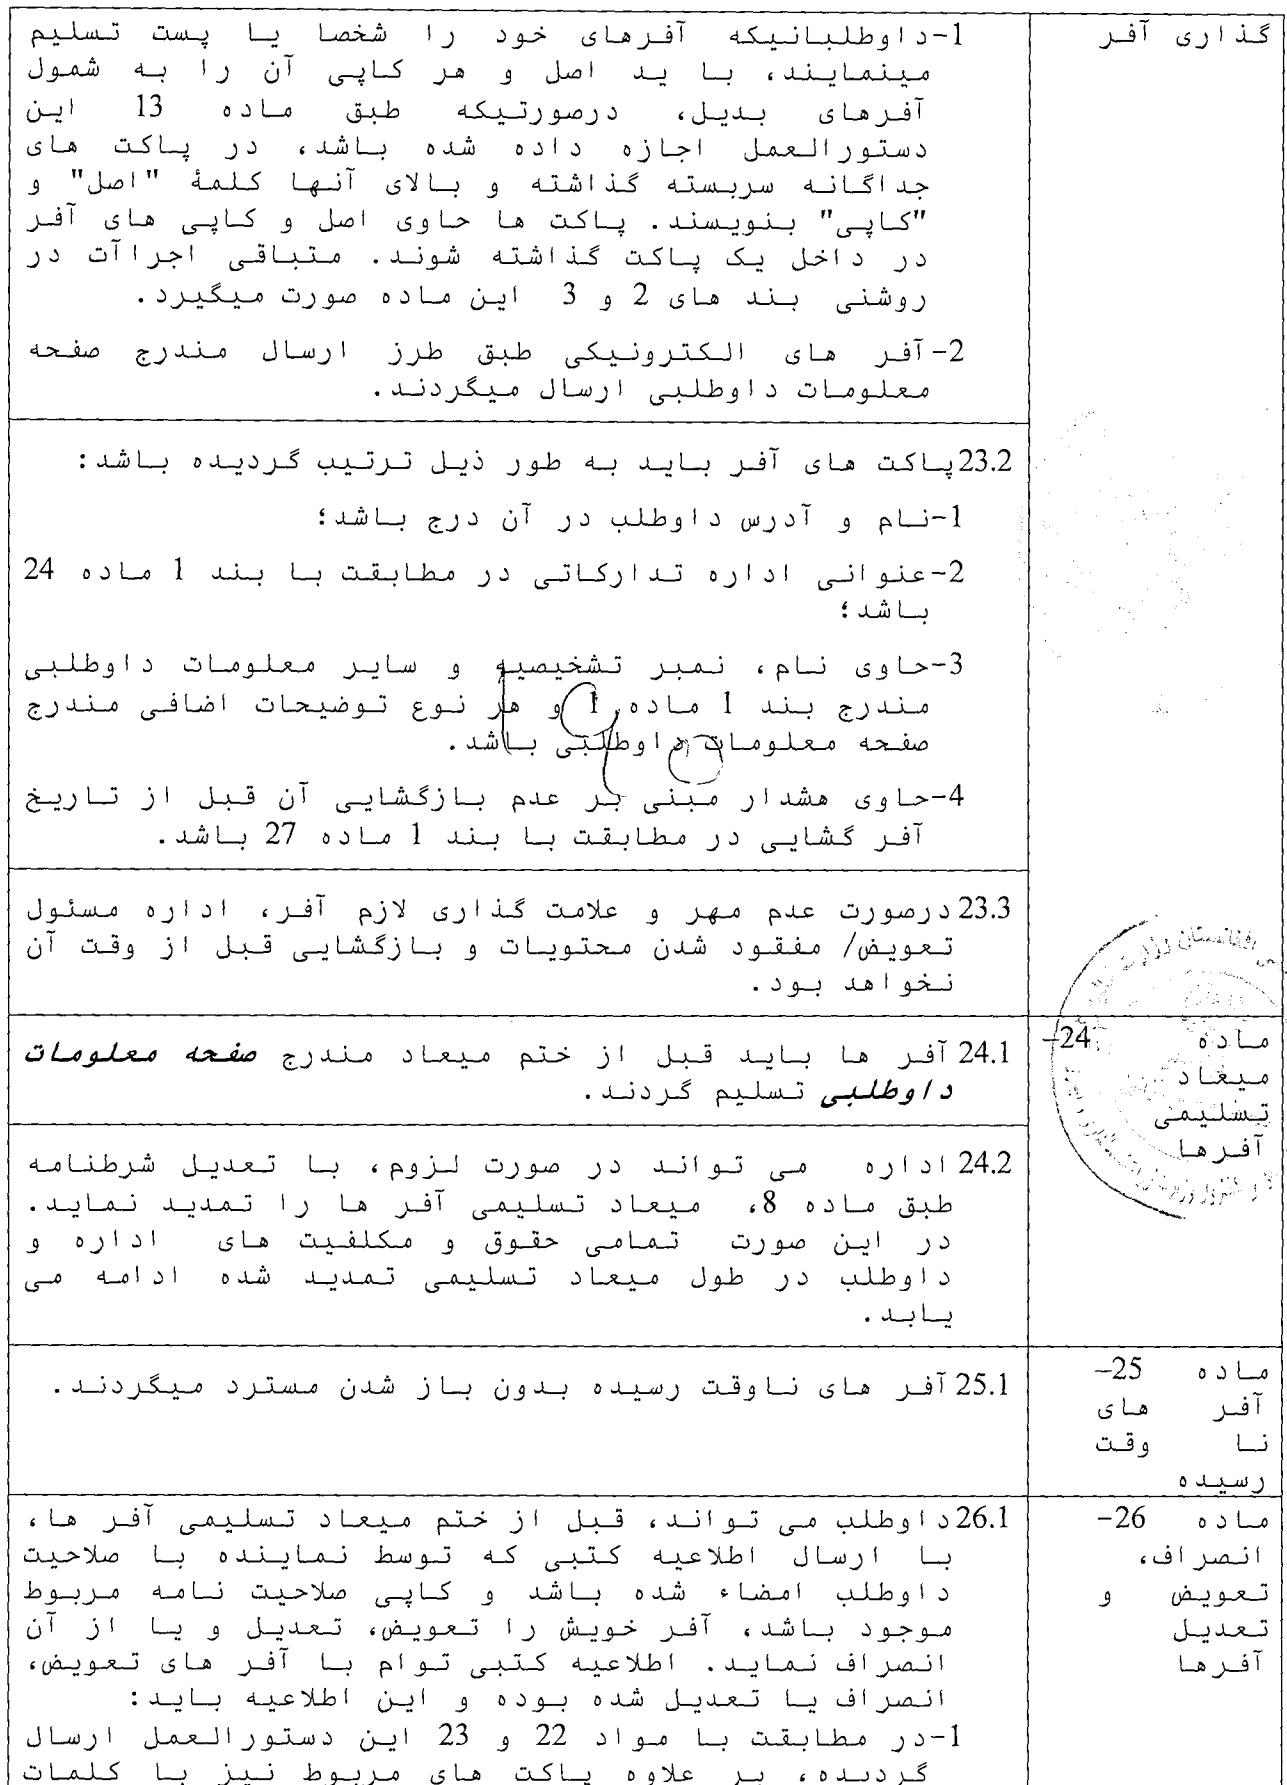 گذاری آفر
1-داوطلبانیکه آفرهای خود را شخصا یا پست تسلیم
مینمایند، با ید اصل و هر کاپی آن را به شمول
آفرهای بدیل، درصورتیکه طبق ماده 13 این
دستورالعمل اجازه داده شده باشد، در پاکت های
جداگانه سربسته گذاشته و بالای آنها کلمهٔ "اصل" و
"کاپی" بنویسند. پاکت ها حاوی اصل و کاپی های آفر
در داخل یک پاکت گذاشته شوند. متباقی اجراآت در
روشنی بند های 2 و 3 این ماده صورت میگیرد.
2-آفر های الکترونیکی طبق طرز ارسال مندرج صفحه
معلومات داوطلبی ارسال میگردند.
23.2پاکت های آفر باید به طور ذیل ترتیب گردیده باشد:
1-نام و آدرس داوطلب در آن درج باشد؛
2-عنوانی اداره تدارکاتی در مطابقت با بند 1 ماده 24
باشد؛
3-حاوی نام، نمبر تشخیصیه و سایر معلومات داوطلبی
مندرج بند 1 ماده 1 و هر نوع توضیحات اضافی مندرج
صفحه معلومات داوطلبی باشد.
4-حاوی هشدار مبنی بر عدم بازگشایی آن قبل از تاریخ
آفر گشایی در مطابقت با بند 1 ماده 27 باشد.
23.3درصورت عدم مهر و علامت گذاری لازم آفر، اداره مسئول
تعویض/ مفقود شدن محتویات و بازگشایی قبل از وقت آن
نخواهد بود.
ماده 24-
میعاد
تسلیمی
آفرها
24.1آفر ها باید قبل از ختم میعاد مندرج صفحه معلومات
داوطلبی تسلیم گردند.
24.2اداره می تواند در صورت لزوم، با تعدیل شرطنامه
طبق ماده 8، میعاد تسلیمی آفر ها را تمدید نماید.
در این صورت تمامی حقوق و مکلفیت های اداره و
داوطلب در طول میعاد تسلیمی تمدید شده ادامه می
یابد.
ماده 25-
آفر های
نا وقت
رسیده
25.1آفر های ناوقت رسیده بدون باز شدن مسترد میگردند.
ماده 26-
انصراف،
تعویض و
تعدیل
آفرها
26.1داوطلب می تواند، قبل از ختم میعاد تسلیمی آفر ها،
با ارسال اطلاعیه کتبی که توسط نماینده با صلاحیت
داوطلب امضاء شده باشد و کاپی صلاحیت نامه مربوط
موجود باشد، آفر خویش را تعویض، تعدیل و یا از آن
انصراف نماید. اطلاعیه کتبی توام با آفر های تعویض،
انصراف یا تعدیل شده بوده و این اطلاعیه باید:
1-در مطابقت با مواد 22 و 23 این دستورالعمل ارسال
گردیده، بر علاوه پاکت های مربوط نیز با کلمات